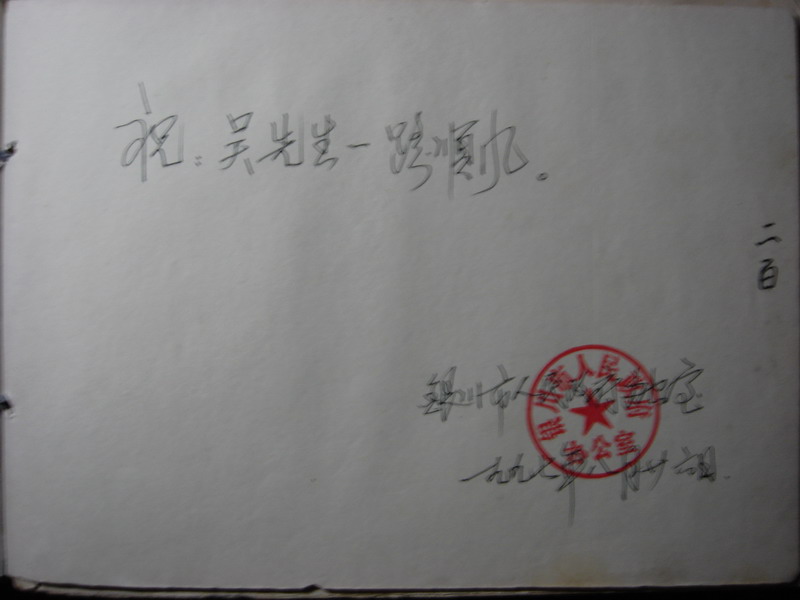 祝:吴先生一路顺风。
二百
银川市人民政府办公室
银川市人民政府
办公室
一九九七年八月廿六日.